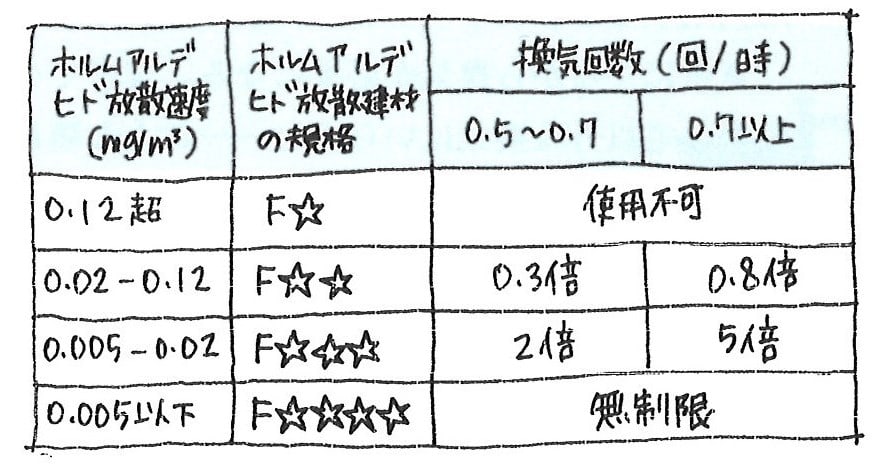 ホルムアルデ
ヒド放散速度
(mg/m³)
ホルムアルデ
ヒド放散建材
の規格
換気回数(回/時)
0.5～0.7
0.7以上
0.12超
F☆
使用不可
0.02-0.12
F☆☆
0.3倍
0.8倍
0.005-0.02
F☆☆☆
2倍
5倍
0.005以下
F☆☆☆☆
無制限